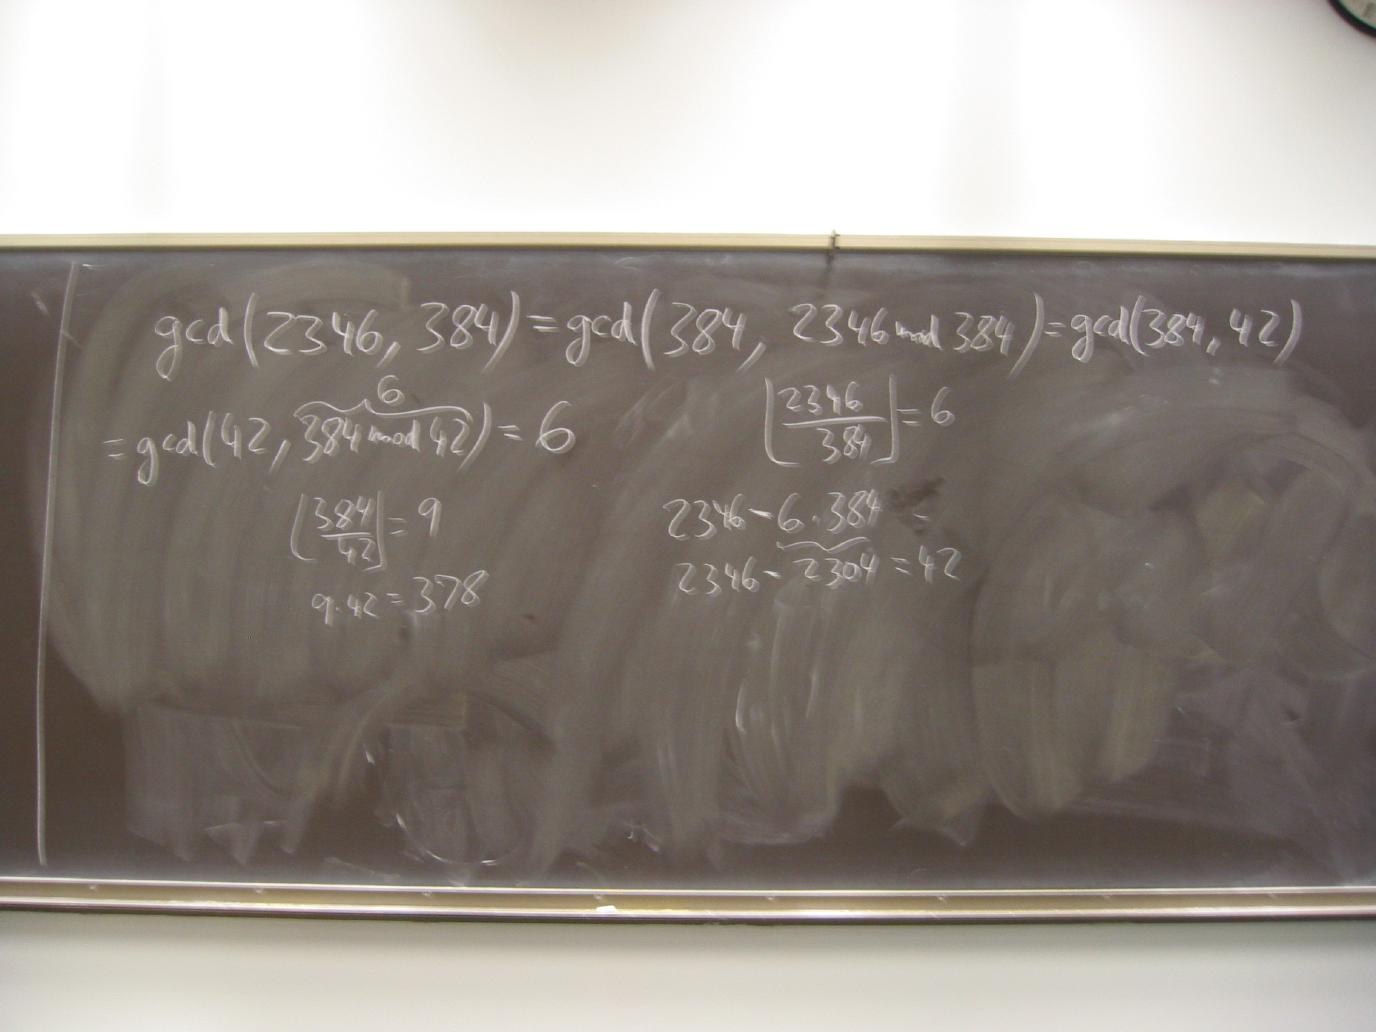 gcd(2346, 384) = gcd(384, 2346 mod 384) = gcd(384, 42)
6
= gcd(42, 384 mod 42) = 6
⌊2346/384⌋ = 6
⌊384/42⌋ = 9
9·42 = 378
2346 - 6·384 =
2346 - 2304 = 42